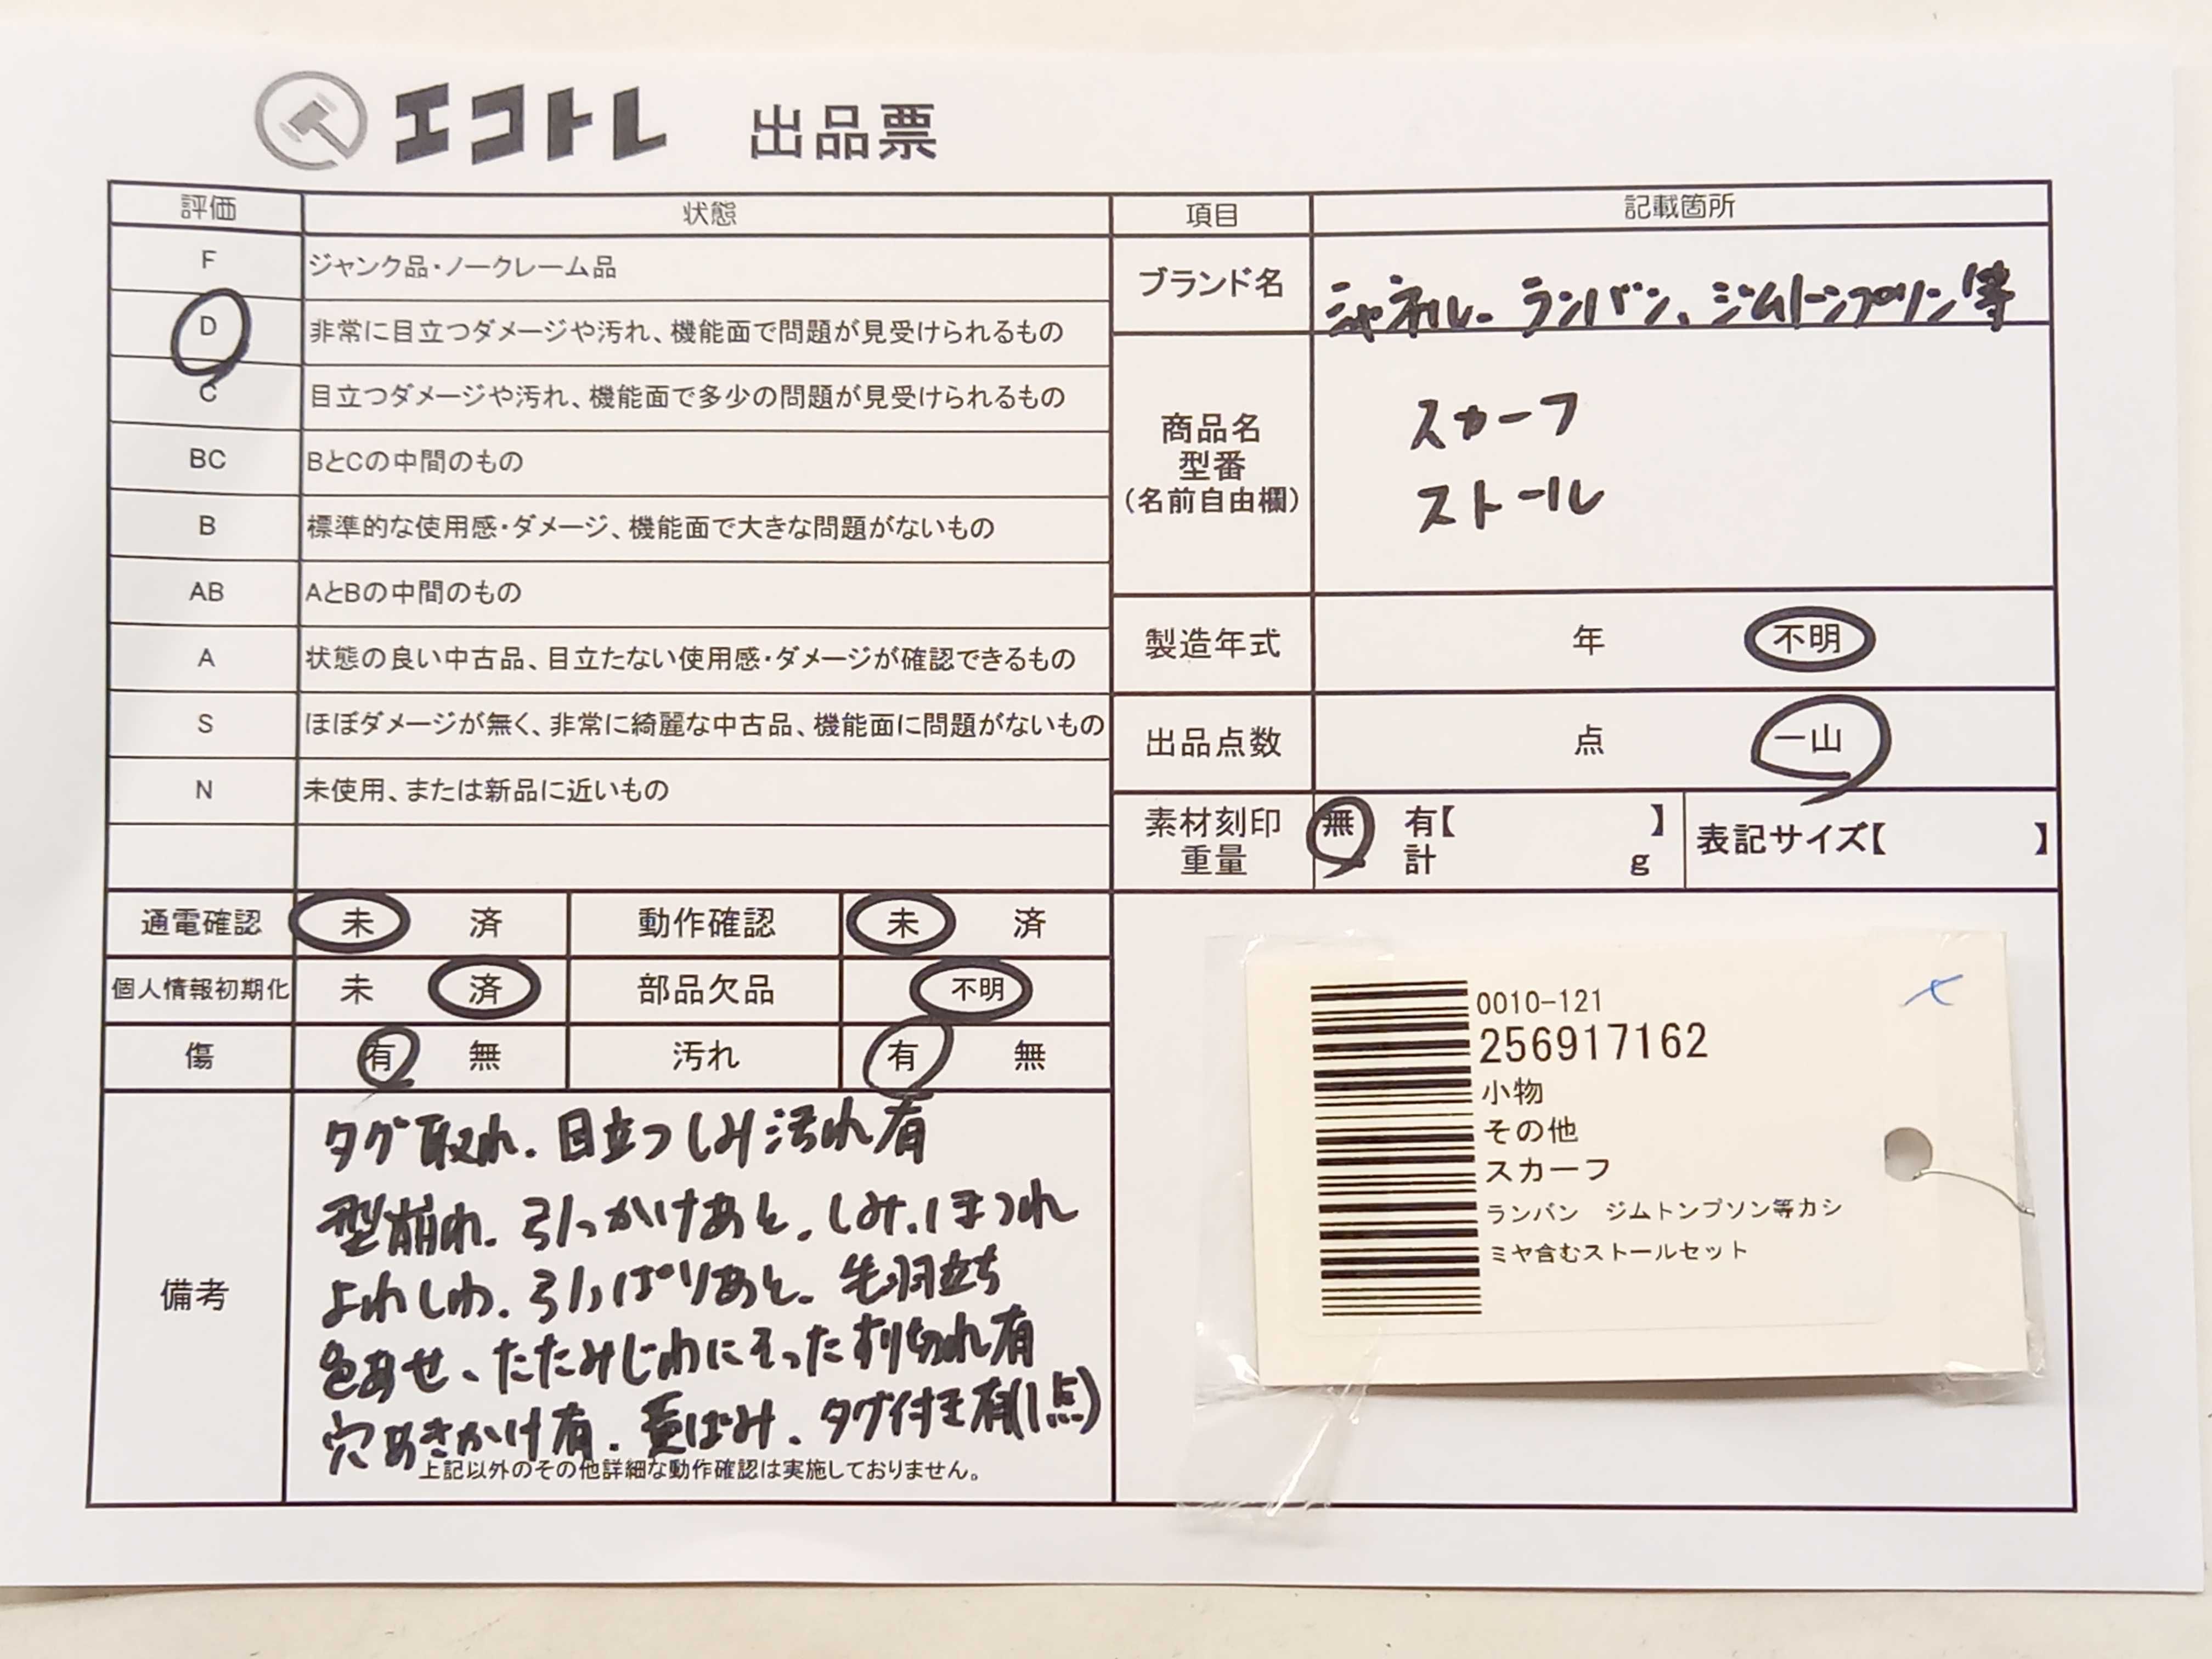 エコトレ 出品票
評価 状態
F ジャンク品・ノークレーム品
D 非常に目立つダメージや汚れ、機能面で問題が見受けられるもの
C 目立つダメージや汚れ、機能面で多少の問題が見受けられるもの
BC BとCの中間のもの
B 標準的な使用感・ダメージ、機能面で大きな問題がないもの
AB AとBの中間のもの
A 状態の良い中古品、目立たない使用感・ダメージが確認できるもの
S ほぼダメージが無く、非常に綺麗な中古品、機能面に問題がないもの
N 未使用、または新品に近いもの
項目 記載箇所
ブランド名 シャネル、ランバン、ジムトンプソン等
商品名
型番
(名前自由欄)
スカーフ
ストール
製造年式 年 不明
出品点数 点 一山
素材刻印 無 有【 】
重量 計 g
表記サイズ【 】
通電確認 未 済 動作確認 未 済
個人情報初期化 未 済 部品欠品 不明
傷 有 無 汚れ 有 無
備考
タグ取れ、目立つしみ汚れ有
型崩れ、引っかけあと、しみ、ほつれ
よれしわ、引っぱりあと、毛羽立ち
色あせ、たたみじわにそったすり切れ有
穴あきかけ有、黄ばみ、タグ付き有(1点)
上記以外のその他詳細な動作確認は実施しておりません。
0010-121
256917162
小物
その他
スカーフ
ランバン ジムトンプソン等カシ
ミヤ含むストールセット